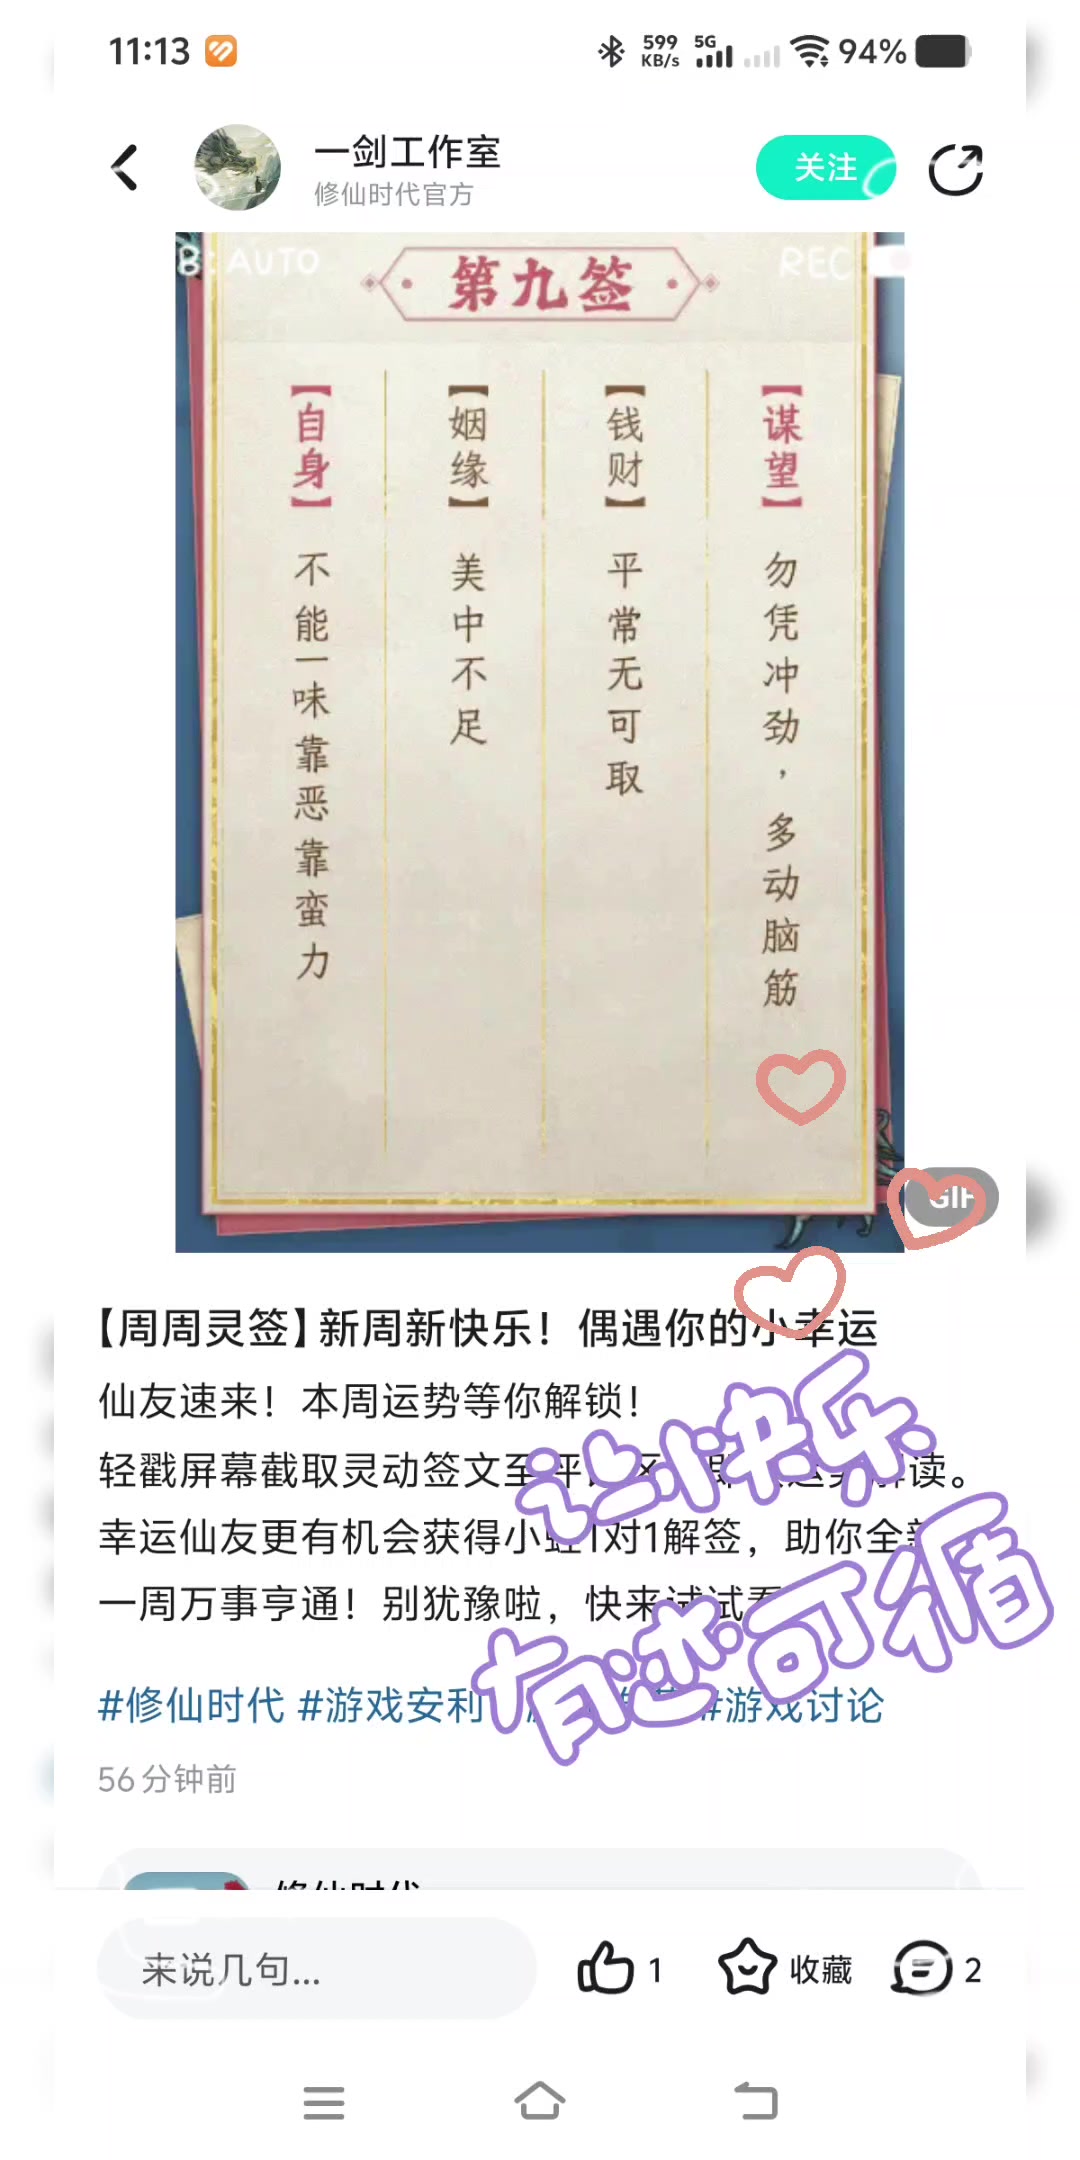 11:13
599 KB/s 5G 94%
一剑工作室
修仙时代官方
关注
B: AUTO
REC
第九签
【谋望】 勿凭冲劲，多动脑筋
【钱财】 平常无可取
【姻缘】 美中不足
【自身】 不能一味靠恶靠蛮力
GIF
【周周灵签】新周新快乐！偶遇你的小幸运
仙友速来！本周运势等你解锁！
轻戳屏幕截取灵动签文至评 区 解读。
幸运仙友更有机会获得小虹1对1解签，助你全新
一周万事亨通！别犹豫啦，快来试试看
让快乐
有迹可循
#修仙时代 #游戏安利 #游戏讨论
56分钟前
修仙时代
来说几句...
1
收藏
2